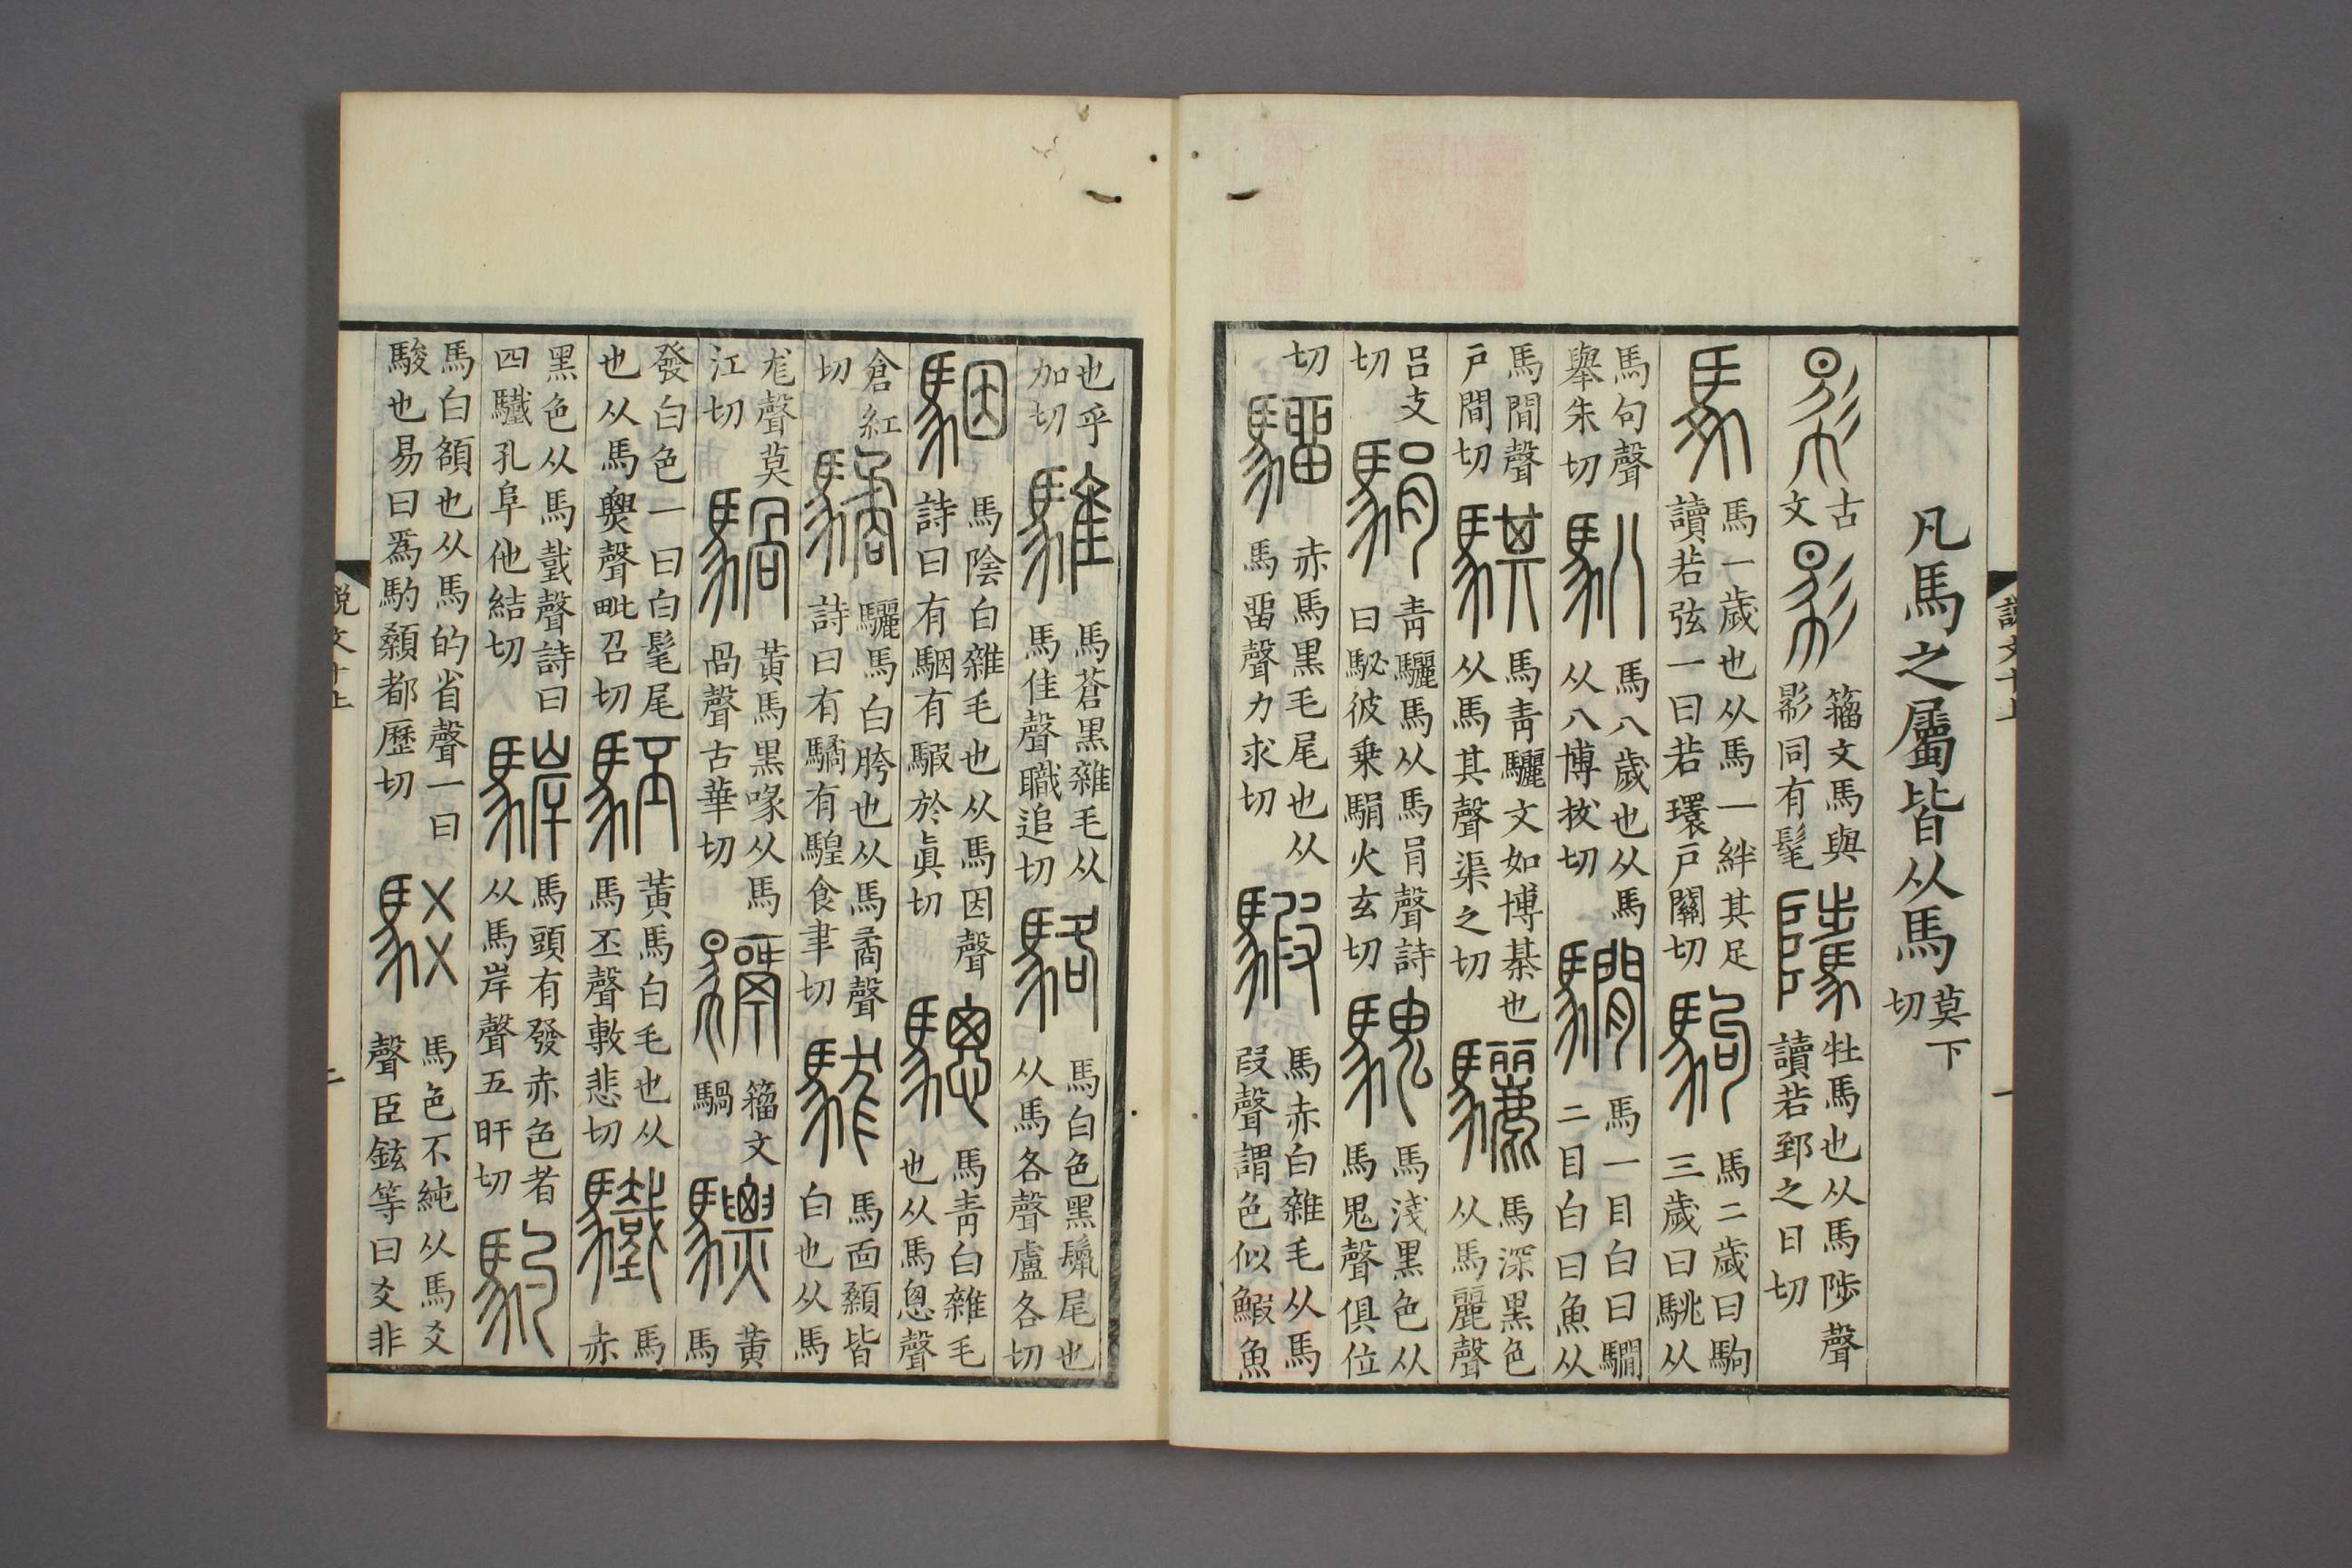 說文十上 一
凡馬之屬皆从馬莫下切
𢒠古文𢒗籒文馬與影同有髦騭牡馬也从馬陟聲讀若郅之日切
馬一歲也从馬一絆其足讀若弦一曰若環戶關切駒馬二歲曰駒三歲曰駣从
馬句聲舉朱切馬八歲也从馬从八博拔切馬一目白曰瞷二目白曰魚从
馬閒聲戶閒切騏馬青驪文如博棊也从馬其聲渠之切驪馬深黑色从馬麗聲
呂支切駽青驪馬从馬肙聲詩曰駜彼乗駽火玄切騩馬淺黑色从馬鬼聲俱位
切騮赤馬黑毛尾也从馬畱聲力求切騢馬赤白雜毛从馬叚聲謂色似鰕魚
也乎加切騅馬蒼黑雜毛从馬隹聲職追切駱馬白色黑鬛尾也从馬各聲盧各切
駰馬陰白雜毛也从馬因聲詩曰有駰有騢於眞切驄馬青白雜毛也从馬悤聲
倉紅切驈驪馬白胯也从馬矞聲詩曰有驈有騜食聿切駹馬面顙皆白也从馬
尨聲莫江切騧黃馬黑喙从馬咼聲古華切籒文騧驃黃馬
發白色一曰白髦尾也从馬㶾聲毗召切駓黃馬白毛也从馬丕聲敷悲切驖馬赤
黑色从馬𢧜聲詩曰四驖孔阜他結切馬頭有發赤色者从馬岸聲五旰切馰
馬白頟也从馬的省聲一曰駿也易曰爲馰顙都歷切駁馬色不純从馬爻聲臣鉉等曰爻非
說文十上 二